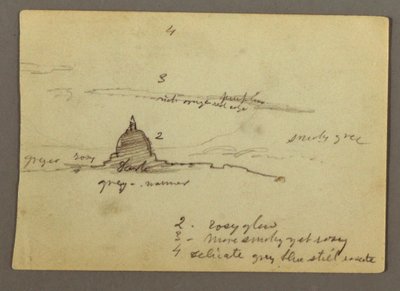 4
3
purplish
rich orange red edge
2
smoky grey
greyer rosy
Dark
grey - warmer
2 - rosy glow
3 - more smoky yet rosy
4 delicate grey blue still